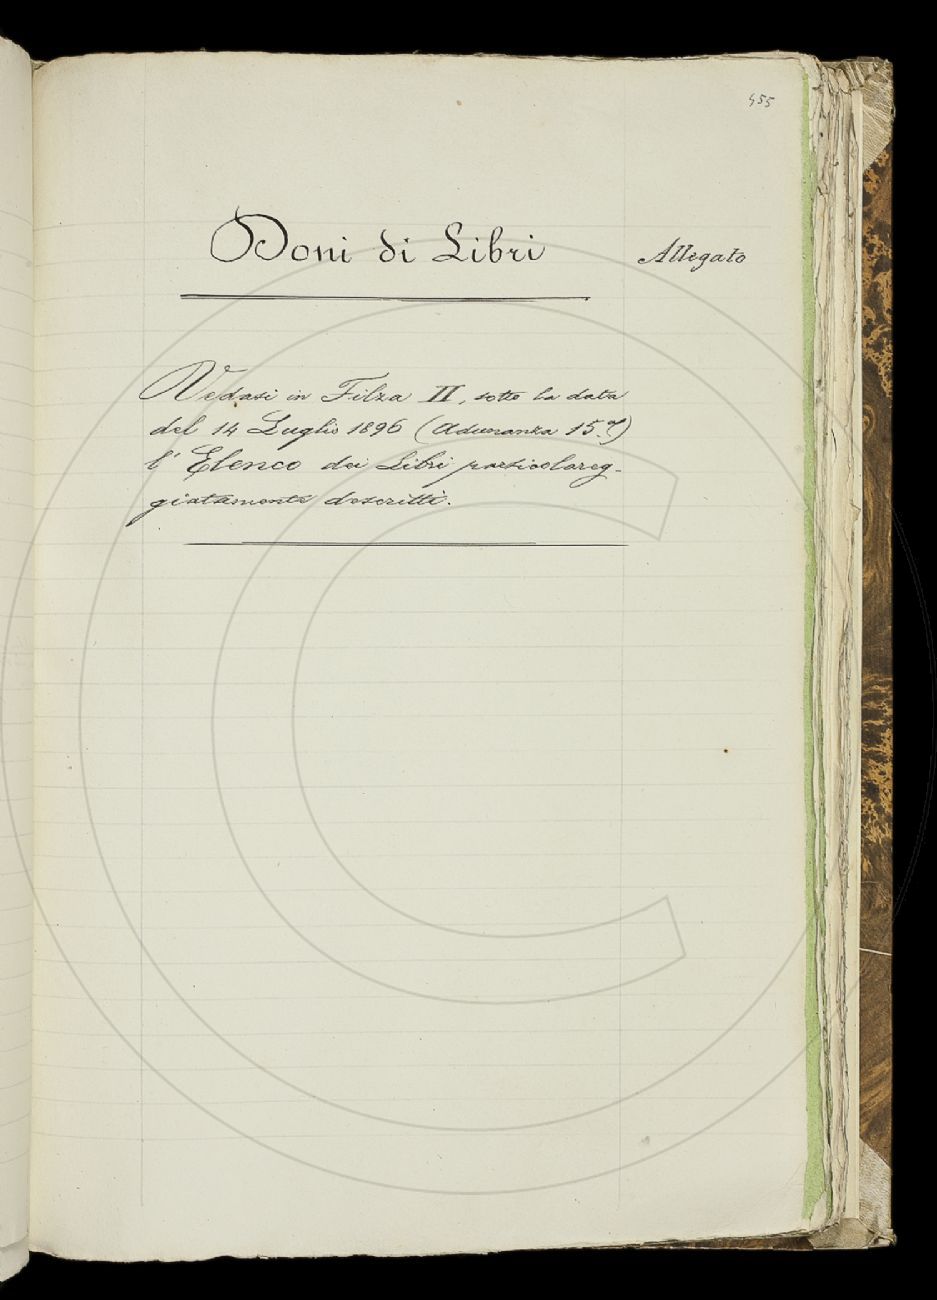 455
Doni di Libri
Allegato
Vedasi in Filza II, sotto la data
del 14 Luglio 1896 (Adunanza 15.a)
l'Elenco dei Libri particolareg-
giatamente descritti.